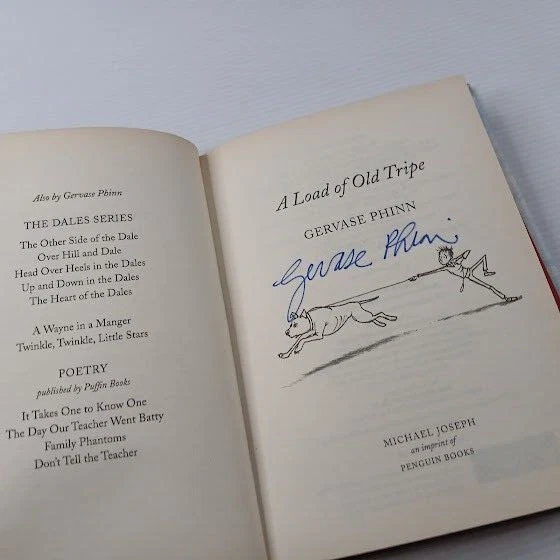 Also by Gervase Phinn
THE DALES SERIES
The Other Side of the Dale
Over Hill and Dale
Head Over Heels in the Dales
Up and Down in the Dales
The Heart of the Dales
A Wayne in a Manger
Twinkle, Twinkle, Little Stars
POETRY
published by Puffin Books
It Takes One to Know One
The Day Our Teacher Went Batty
Family Phantoms
Don't Tell the Teacher
A Load of Old Tripe
GERVASE PHINN
Gervase Phinn
MICHAEL JOSEPH
an imprint of
PENGUIN BOOKS